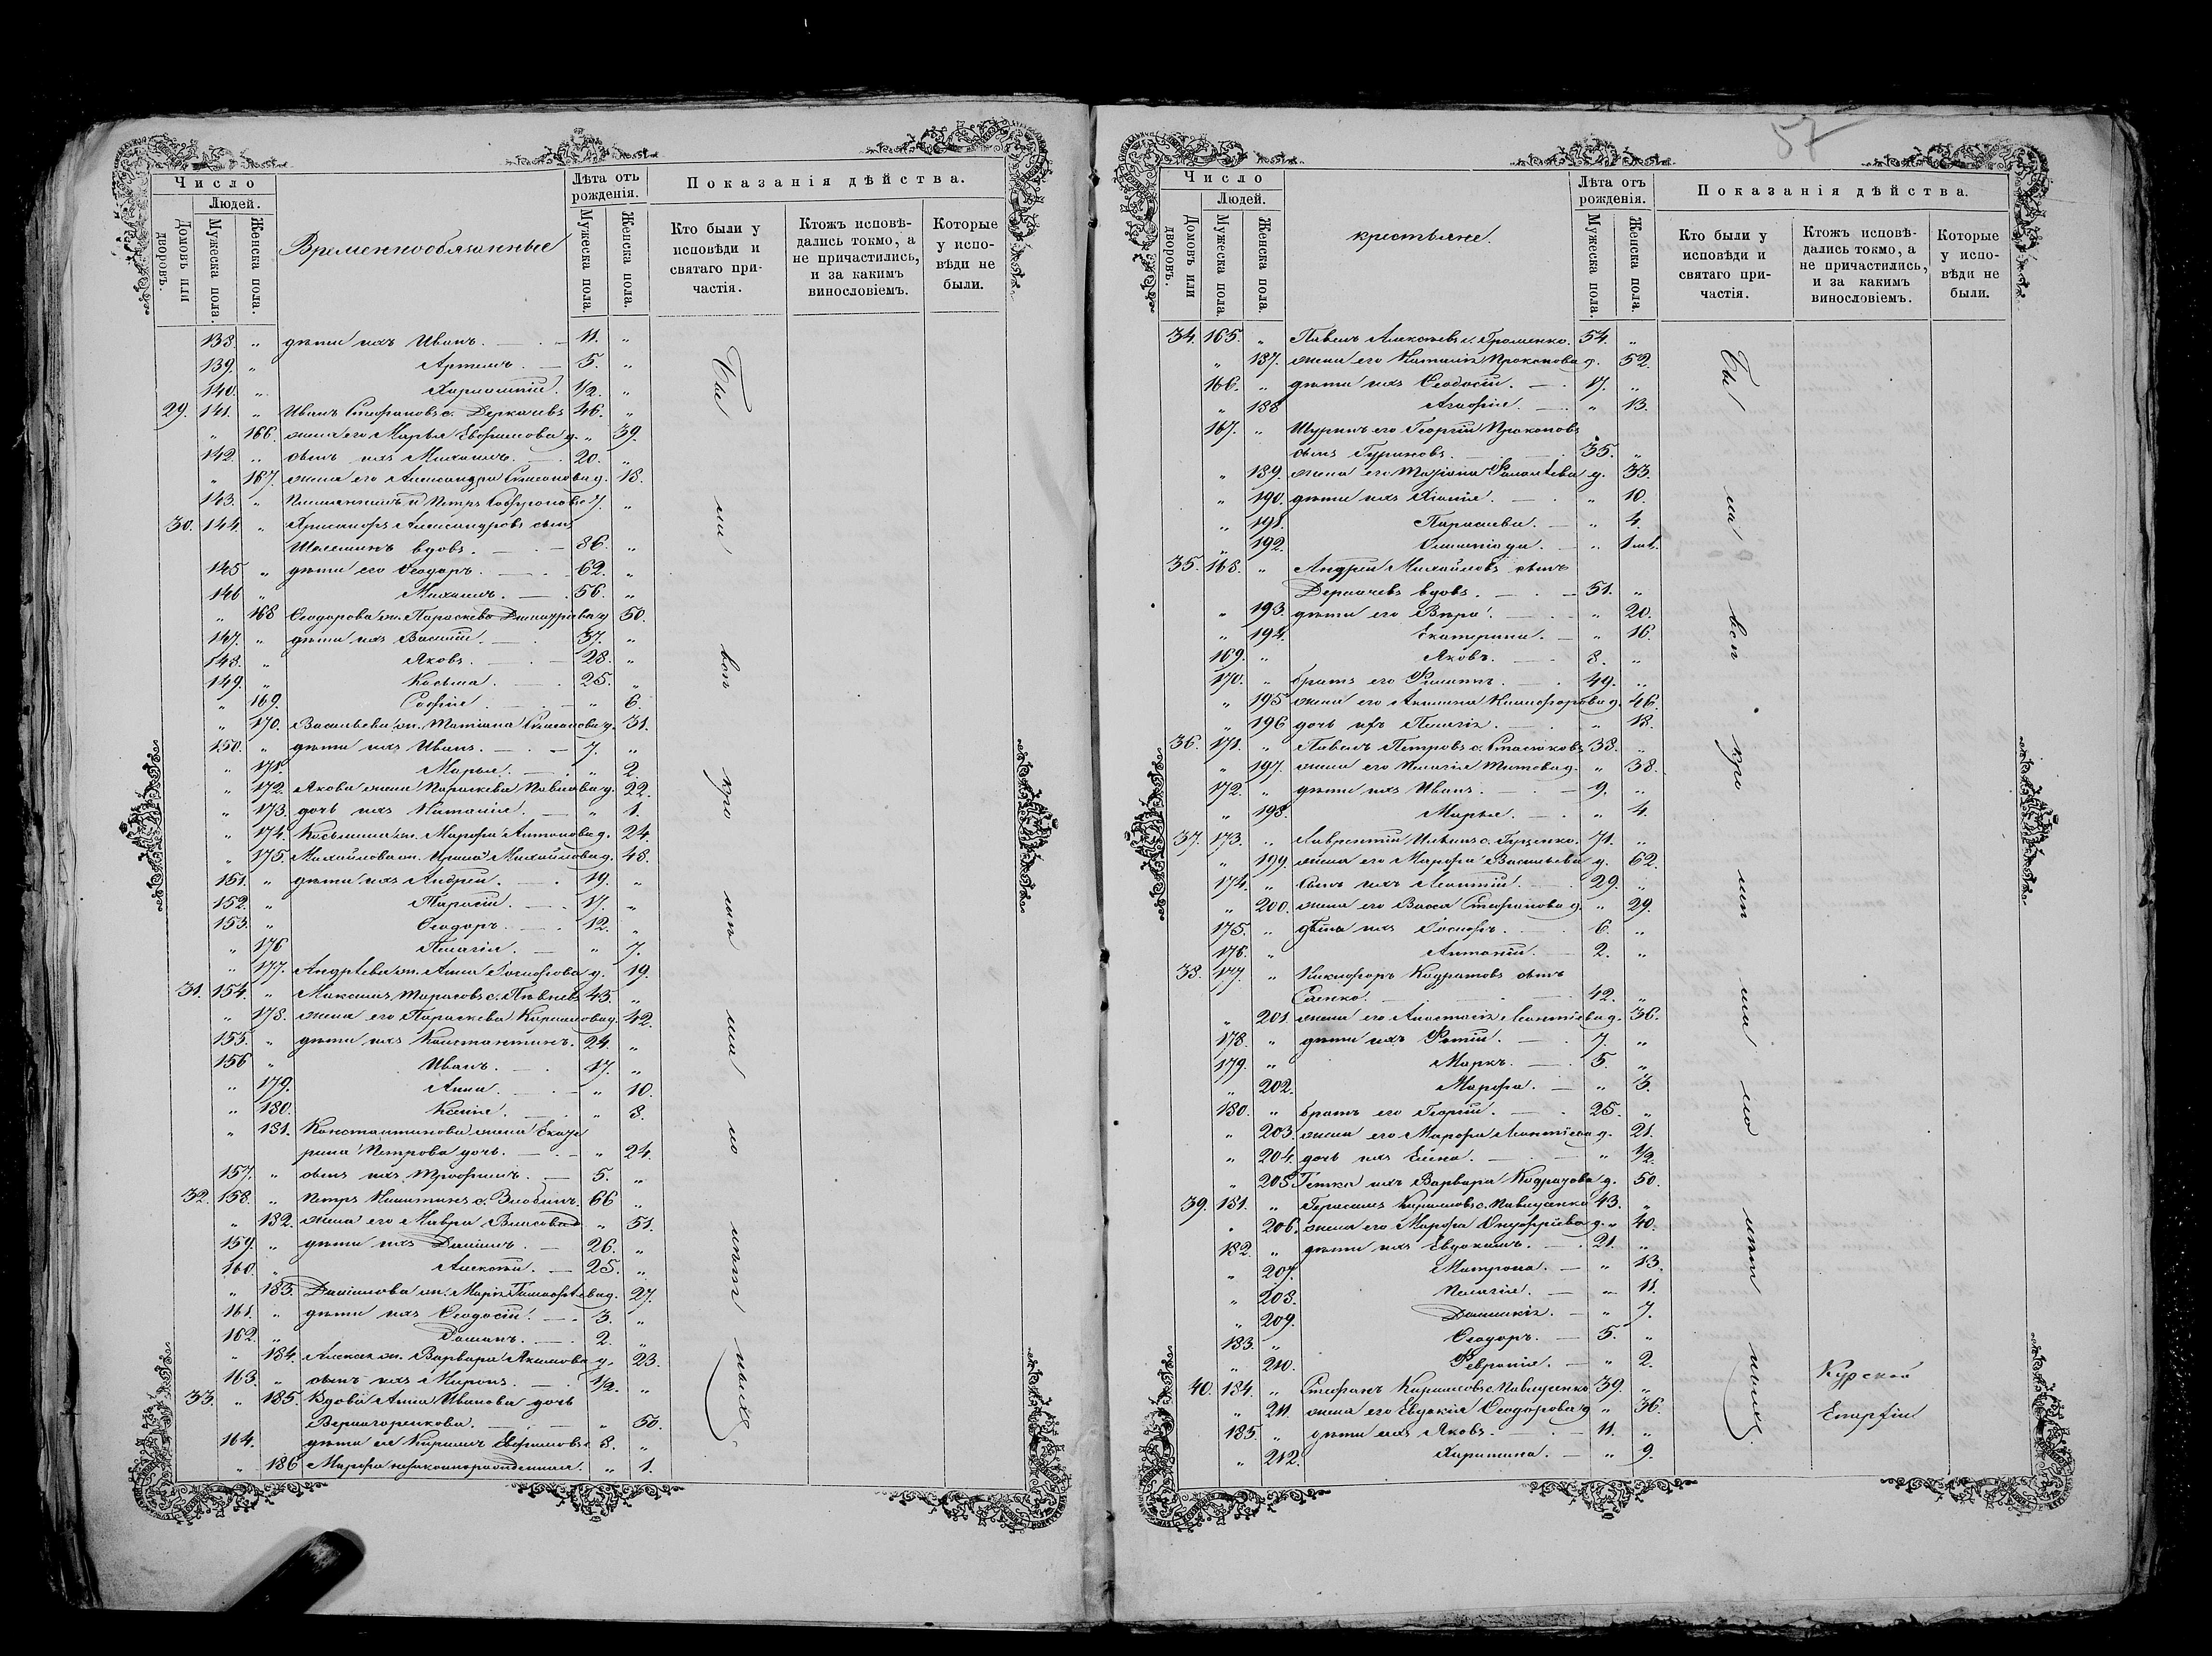 Число
Людей.
Домовъ или дворовъ.
Мужеска пола.
Женска пола.
Временнообязанные
Лѣта отъ рожденія.
Мужеска пола.
Женска пола.
Показанія дѣйства.
Кто были у исповѣди и святаго причастія.
Ктожъ исповѣдались токмо, а не причастились, и за какимъ винословіемъ.
Которые у исповѣди не были.
138. „ дѣти ихъ Иванъ. 11. „
139. „ Артемъ. 5. „
140. „ Харлампій. 1/2. „
29. 141. „ Иванъ Стефановъ с. Деркачевъ 46. „
„ 166. жена его Марья Ефремова д. „ 39.
142. „ сынъ ихъ Михаилъ. 20. „
„ 167. жена его Александра Симеонова д. 18.
143. „ Петръ Софроновъ 7. „
30. 144. „ Александровъ сынъ
вдовъ. 86. „
145. „ дѣти его Ѳеодоръ. 62. „
146 „ Михаилъ. 56. „
„ 168 Ѳеодорова ж. Параскева Димитріева д 50.
147. „ дѣти ихъ Василій. 37. „
148. „ Яковъ. 28. „
149. „ Косьма. 25. „
„ 169. Софія. „ 6.
„ 170. Васильева ж. Татіана Симеонова д. 31.
150. „ дѣти ихъ Иванъ. 7. „
„ 171. Марья. „ 2.
„ 172. Якова жена Параскева Павлова д. 22.
„ 173. дочь ихъ Наталія. „ 1.
„ 174. Косьмина ж. Марфа Антонова д. 24.
„ 175. Михайлова ж. Ирина Михайлова д. 48.
151. „ дѣти ихъ Андрей. 19. „
152. „ Тарасій. 17. „
153. „ Ѳеодоръ. 12. „
„ 176 Пелагія. „ 7.
„ 177. Андрѣева ж. Анна Іосифова д. 19.
31. 154. „ Максимъ Тарасовъ с. Пѣвневъ 45. „
„ 178. жена его Параскева Кирилова д. 42.
155. „ дѣти ихъ Константинъ. 24. „
156 „ Иванъ. 17. „
„ 179. Анна. „ 10.
„ 180. Ксенія. „ 8.
„ 181. Константинова жена Екате
рина Петрова дочь. „ 24.
157. „ сынъ ихъ Трофимъ. 5. „
32. 158. „ Петръ Никитинъ с. 66 „
„ 182. жена его Мавра Власова д „ 51.
159. „ дѣти ихъ Даніилъ. 26. „
160. „ Алексѣй. 25. „
„ 183. Даніилова ж. Марія Тимофѣева д. 27.
161. „ дѣти ихъ Ѳеодосій. 3. „
162. „ Романъ. 2. „
„ 184. Алексѣя ж. Варвара Акимова д. 23.
163. „ сынъ ихъ Миронъ. 1/2. „
33. „ 185. Вдова Анна Иванова дочь
„ 50.
164. дѣти ея Кирилъ Ефремовъ 8. „
„ 186 Марфа незаконнорожденная. „ 1.
57
Число
Людей.
Домовъ или дворовъ.
Мужеска пола
Женска пола.
крестьяне.
Лѣта отъ рожденія.
Мужеска пола.
Женска пола.
Показанія дѣйства.
Кто были у исповѣди и святаго причастія.
Ктожъ исповѣдались токмо, а не причастились, и за какимъ винословіемъ.
Которые у исповѣди не были.
34. 165. „ Павелъ Алексѣевъ с. Громенко. 54. „
„ 187. жена его Наталія Прокопова д. 52.
166. „ дѣти ихъ Ѳеодосій. 17. „
„ 188 Агафія. „ 13.
167. „ Шуринъ его Георгій Прокоповъ
сынъ Гуриновъ. 35. „
„ 189. жена его д. 33.
„ 190. дѣти ихъ „ 10.
„ 191. Параскева. „ 4.
„ 192. Олимпіада. „ 1
35. 168. „ Андрей Михайловъ сынъ
Деркачевъ вдовъ. 51. „
„ 193. дѣти его Вѣра. „ 20.
„ 194. Екатерина. „ 16.
169. „ Яковъ. 8. „
170. „ братъ его Филиппъ. 49. „
„ 195 жена его Акилина Никифорова д. 46.
„ 196 дочь ихъ Пелагія. „ 18.
36. 171. „ Павелъ Петровъ с. Стасюковъ 38. „
„ 197. жена его Пелагія Титова д. „ 38.
172. „ дѣти ихъ Иванъ. 9. „
„ 198. Марья. „ 4.
37. 173. „ Лаврентій Ильинъ с. Гуценко. 71. „
„ 199. жена его Марфа Васильева д. 62.
174. „ Сынъ ихъ Леонтій. 29. „
„ 200. жена его Васса Стефанова д. „ 29.
175. „ Дѣти ихъ Іосифъ. 6. „
176. „ Антоній. 2. „
38. 177. „ Никифоръ Кодратовъ сынъ
Саенко. 42. „
„ 201. жена его Анастасія Леонтіева д. 36.
178. „ дѣти ихъ Фотій. 7. „
179. „ Маркъ. 5. „
„ 202. Марфа. „ 3.
180. „ братъ его Георгій. 25. „
„ 203. жена его Марфа Леонтіева д. 21.
„ 204. дочь ихъ Елена. „ 1/2.
„ 205 Тетка ихъ Варвара Кодратова д. 50.
39. 181. „ Герасимъ Кириловъ с. Павлусенко 43. „
„ 206. жена его Марфа Онуфріева д. „ 40.
182. „ дѣти ихъ Евдокимъ. 21. „
„ 207. Матрона. „ 13.
„ 208. Пелагія. „ 11.
„ 209. Домникія. „ 7.
183. „ Ѳеодоръ. 5. „
„ 210. Февронія. „ 2.
40. 184. „ Стефанъ Кириловъ с. Павлусенко 39. „
„ 211. жена его Евдокія Ѳеодорова д „ 36.
185. „ дѣти ихъ Яковъ. 11. „
„ 212. Харитина. „ 9.
Курской
Епархіи